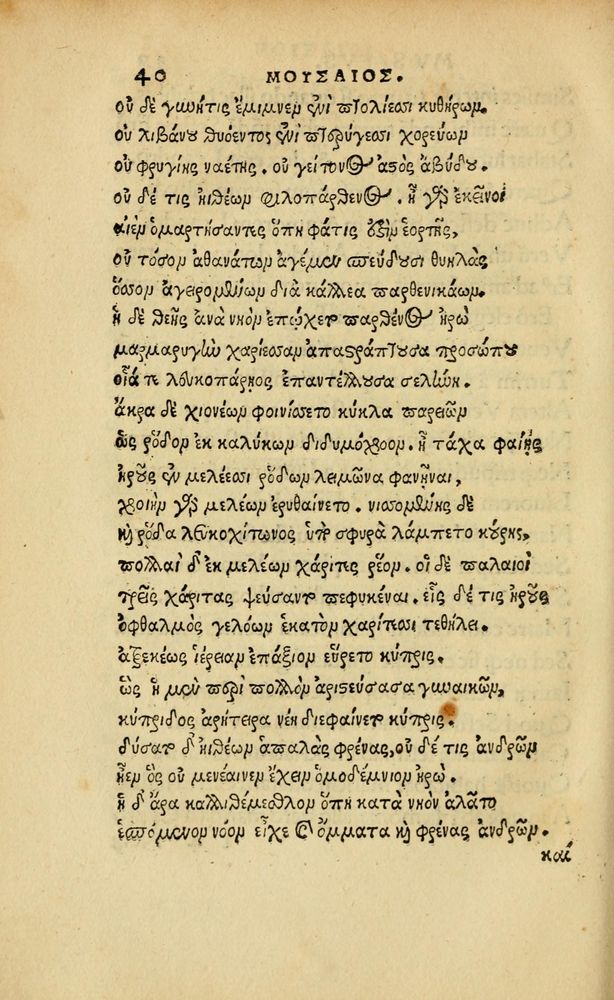 40 ΜΟΥΣΑΙΟΣ.
οὐ δὲ γυνή τις ἔμιμνεν ἐνὶ πτολίεσσι κυθήρων.
οὐ λιβάνου θυόεντος ἐνὶ πτερύγεσσι χορεύων
οὐ φρυγίης ναέτης. οὐ γείτονος ἀστὸς ἀβύδου.
οὐ δέ τις ἠιθέων φιλοπάρθενος. ἦ γὰρ ἐκεῖνοι
αἰὲν ὁμαρτήσαντες ὅπη φάτις ἐστὶν ἑορτῆς,
οὐ τόσον ἀθανάτων ἀγέμεν σπεύδουσι θυηλὰς
ὅσσον ἀγειρομένων διὰ κάλλεα παρθενικάων.
ἡ δὲ θεῆς ἀνὰ νηὸν ἐπώχετο παρθένος ἡρὼ
μαρμαρυγὴν χαρίεσσαν ἀπαστράπτουσα προσώπου
οἷά τε λευκοπάρηος ἐπαντέλλουσα σελήνη.
ἄκρα δὲ χιονέων φοινίσσετο κύκλα παρειῶν
ὡς ῥόδον ἐκ καλύκων διδυμόχροον. ἦ τάχα φαίης
ἡροῦς ἐν μελέεσσι ῥόδων λειμῶνα φανῆναι,
χροιὴν γὰρ μελέων ἐρυθαίνετο. νισσομένης δὲ
καὶ ῥόδα λευκοχίτωνος ὑπὸ σφυρὰ λάμπετο κούρης,
πολλαὶ δ' ἐκ μελέων χάριτες ῥέον. οἱ δὲ παλαιοὶ
τρεῖς χάριτας ψεύσαντο πεφυκέναι. εἷς δέ τις ἡροῦς
ὀφθαλμὸς γελόων ἑκατὸν χαρίτεσσι τεθήλει.
ἀτρεκέως ἱέρειαν ἐπάξιον εὕρετο κύπρις.
ὣς ἡ μὲν περὶ πολλὸν ἀριστεύσασα γυναικῶν,
κύπριδος ἀρήτειρα νέη διεφαίνετο κύπρις.
δύσατο δ' ἠιθέων ἁπαλὰς φρένας, οὐ δέ τις ἀνδρῶν
ἦεν ὃς οὐ μενέαινεν ἔχειν ὁμοδέμνιον ἡρώ.
ἡ δ' ἄρα καλλιθέμεθλον ὅπη κατὰ νηὸν ἀλᾶτο
ἑσπόμενον νόον εἶχε καὶ ὄμματα καὶ φρένας ἀνδρῶν.
καί